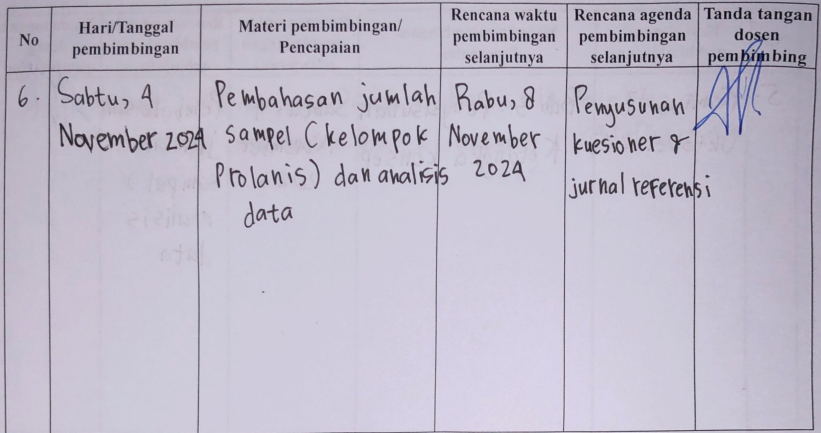 No
Hari/Tanggal
pembimbingan
Materi pembimbingan/
Pencapaian
Rencana waktu
pembimbingan
selanjutnya
Rencana agenda
pembimbingan
selanjutnya
Tanda tangan
dosen
pembimbing
6.
Sabtu, 4
November 2024
Pembahasan jumlah
sampel (kelompok
Prolanis) dan analisis
data
Rabu, 8
November
2024
Penyusunan
kuesioner &
jurnal referensi